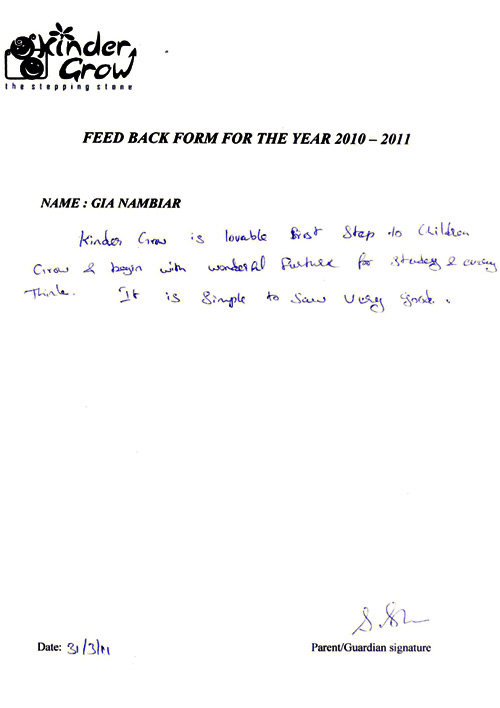 kinder
Grow
the stepping stone
FEED BACK FORM FOR THE YEAR 2010 – 2011
NAME : GIA NAMBIAR
Kinder Grow is lovable first Step to Children
Grow & begin with wonderful Furture for study & every
Think. It is Simple to Saw Very good.
Date: 31/3/11
Parent/Guardian signature